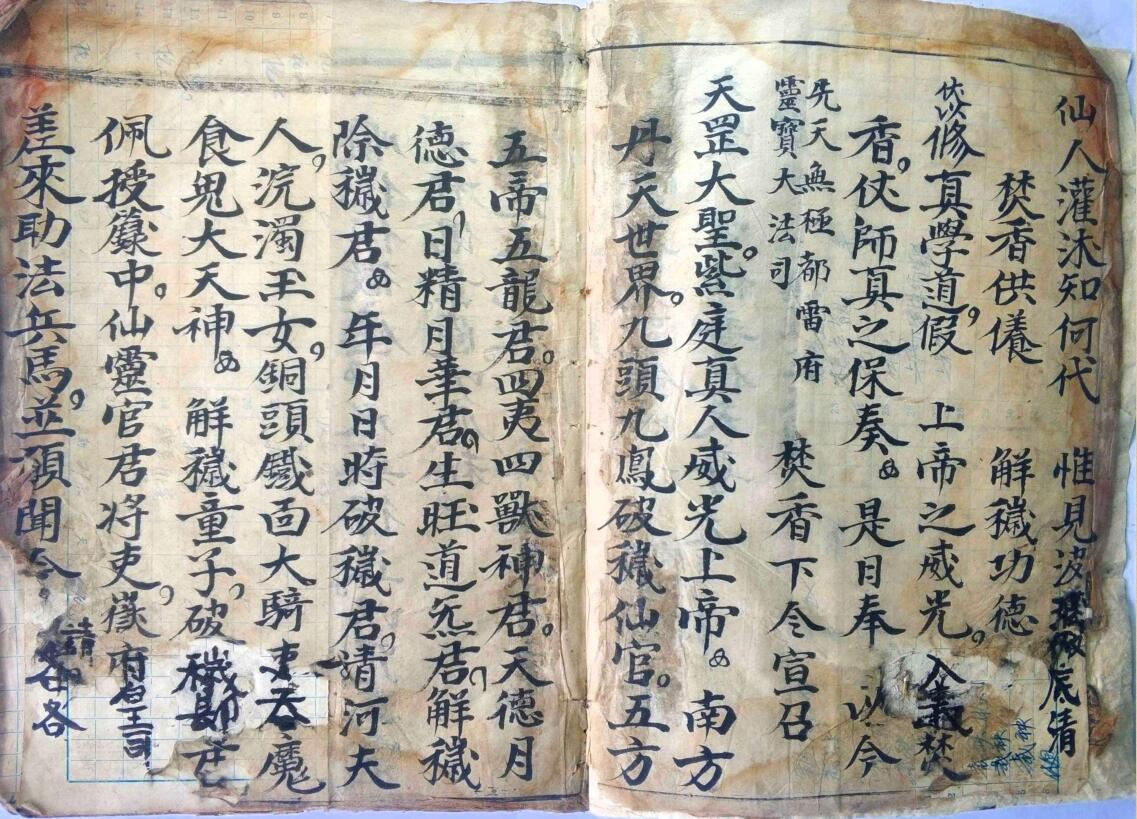 仙人灌沐知何代　惟見波　底清
焚香供養　解穢功德
伏以修真學道假　上帝之威光。　焚
香。伏師真之保奏　是日奉　以今
先天無極都雷府
靈寶大法司　焚香下令宣召
天罡大聖。紫庭真人威光上帝　南方
丹天世界。九頭九鳳破穢仙官。五方
五帝五龍君。四夷四獸神君。天德月
德君，日精月華君，生旺道炁君，解穢
除穢君　年月日時破穢君，清河夫
人，浣濁玉女，銅頭鐵面大騎吏吞魔
食鬼大天神　解穢童子，破穢
佩授籙中。仙靈官君將吏，嶽府
差來助法兵馬，並須聞令。請各各